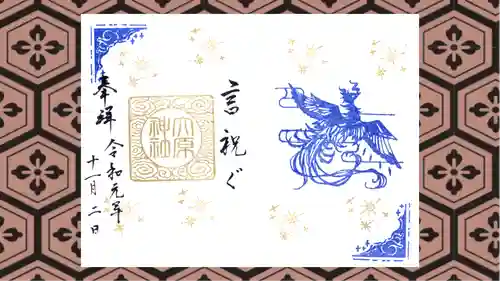 言祝ぐ
六原
神社
奉拝 令和元年
十一月二日